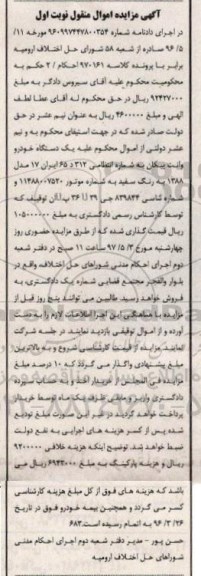 آگهی مزایده اموال منقول نوبت اول
در اجرای دادنامه شماره ۹۶۰۹۹۷۴۴۷۸۰۰۳۵۴ مورخه ۱۱/
۹۶/۵ صادره از شعبه ۵۸ شورای حل اختلاف ارومیه
برابر با پرونده کلاسه ۹۷۰۱۶۱ احکام / ۲ حکم به
محکومیت محکوم علیه آقای سیروس دادگر به مبلغ
۹۲۴۲۷۰۰۰ ریال در حق محکوم له آقای عطا لطف
الهی و مبلغ ۴۶۰۰۰۰۰ ریال به عنوان نیم عشر در حق
دولت صادر شده که در جهت استیفای محکوم به و نیم
عشر دولتی از اموال محکوم علیه یک دستگاه خودرو
وانت پیکان به شماره انتظامی ۳۱۲ د ۶۵ ایران ۱۷ مدل
۱۳۸۸ به رنگ سفید به شماره موتور ۱۱۴۸۸۰۰۷۵۲۰ و
شماره شاسی ۸۳۹۸۴۴ توقیف که
توسط کارشناس رسمی دادگستری به مبلغ ۱۰۵۰۰۰۰۰۰
ریال قیمت گذاری شده که از طرق مزایده حضوری روز
چهارشنبه مورخ ۹۷/۵/۳ ساعت ۱۱ صبح در دفتر شعبه
دوم اجرای احکام مدنی شوراهای حل اختلاف واقع در
بلوار والفجر مجتمع قضایی شماره یک دادگستری، به
فروش خواهد رسید. طالبین می توانند پنج روز قبل از
مزایده با هماهنگی این اجرا اطلاعات لازم را به دست
آورده و از اموال توقیفی بازدید نمایند. در جلسه شرکت
نمایند. مزایده از قیمت کارشناسی شروع و به بالاترین
مبلغ پیشنهادی واگذار می گردد که ۱۰ درصد مبلغ
مزایده فی المجلس از خریدار اخذ و به حساب سپرده
دادگستری واریز و مابقی ظرف یک ماه توسط خریدار
پرداخت خواهد گردید در غیر این صورت مبلغ تودیع
شده پس از کسر هزینه های اجرایی به نفع دولت
ضبط خواهد شد. توضیح اینکه هزینه خلافی ۹۲۰۰۰۰۰
ریال و هزینه پارکینگ به مبلغ ۶۹۳۳۰۰۰ ریال می
باشد که هزینه های فوق از کل مبلغ هزینه کارشناسی
کسر می گردد و همچنین بیمه خودرو فوق در تاریخ
۹۶/۳/۲۶ به اتمام رسیده است. ۶۸۳
حسن پور - مدیر دفتر شعبه دوم اجرای احکام مدنی
شوراهای حل اختلاف ارومیه